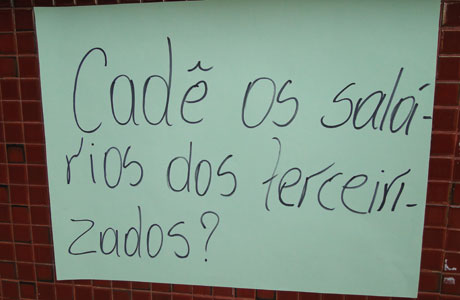 Cadê os salá-
rios dos terceiri-
zados?